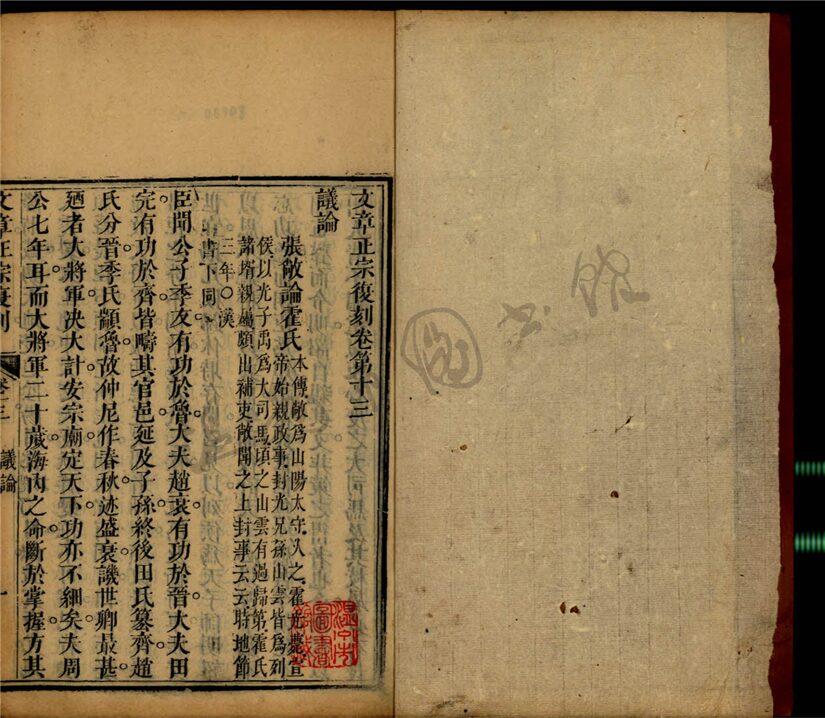 文章正宗復刻卷第十三
議論
張敞論霍氏
本傳敞爲山陽太守久之霍光薨宣
帝始親政事封光兄孫山雲皆爲列
侯以光子禹爲大司馬頃之山雲有過歸第霍氏
諸壻親屬頗出補吏敞聞之上封事云云時地節
三年○漢
書下同
臣聞公子季友有功於魯大夫趙衰有功於晉大夫田
完有功於齊皆疇其官邑延及子孫終後田氏篡齊趙
氏分晉季氏顓魯故仲尼作春秋迹盛衰譏世卿最甚
廼者大將軍决大計安宗廟定天下功亦不細矣夫周
公七年耳而大將軍二十歲海內之命斷於掌握方其
文章正宗復刻 議論 一